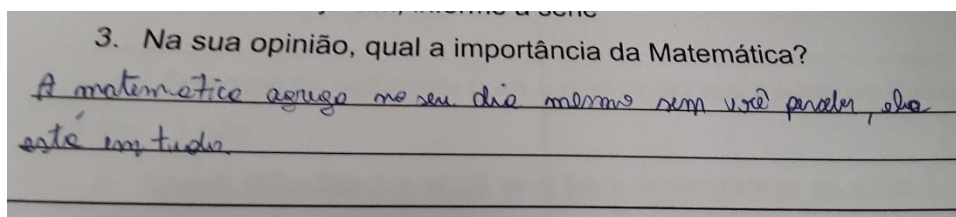 3. Na sua opinião, qual a importância da Matemática?
A matemática agrega no seu dia mesmo sem você perceber, ela
está em tudo.